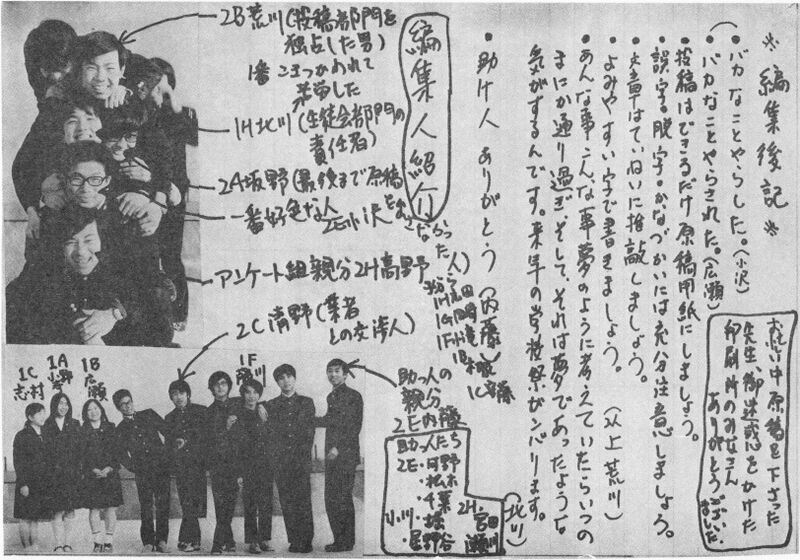 ※編集後記※
・バカなことやらした。(小沢)
・バカなことやらされた。(広瀬)
・投稿はできるだけ原稿用紙にしましょう。
誤字。脱字。かなづかいには充分注意しましょう。
文章はていねいに推敲しましょう。
よみやすい字で書きましょう。
(以上荒川)
・あんな事こんな事夢のように考えていたらいつの
まにか通り過ぎ、そして、それは夢であったような
気がするんです。来年の学校祭ガンバリます。
(北川)
・助け人ありがとう(内藤)
お忙い中原稿を下さった
先生、御迷惑をかけた
印刷所のみなさん
ありがとうござい
ました。
編集人紹介
2B荒川(投稿部門を
独占した男)
1番こまつかわれて
苦労した
1H北川(生徒会部門の
責任者)
2A坂野(最後まで原稿
をまさなかった人)
一番好色な人 2E小沢
アンケート組親分2H高野
2C清野(業者
との交渉人)
1C
志村
1A
1B
広瀬
1F
助っ人の
親分
2E内藤
助っ人たち
2E・日野
松木
千葉
堀
星野谷
小川
2H
宮田
瀬川